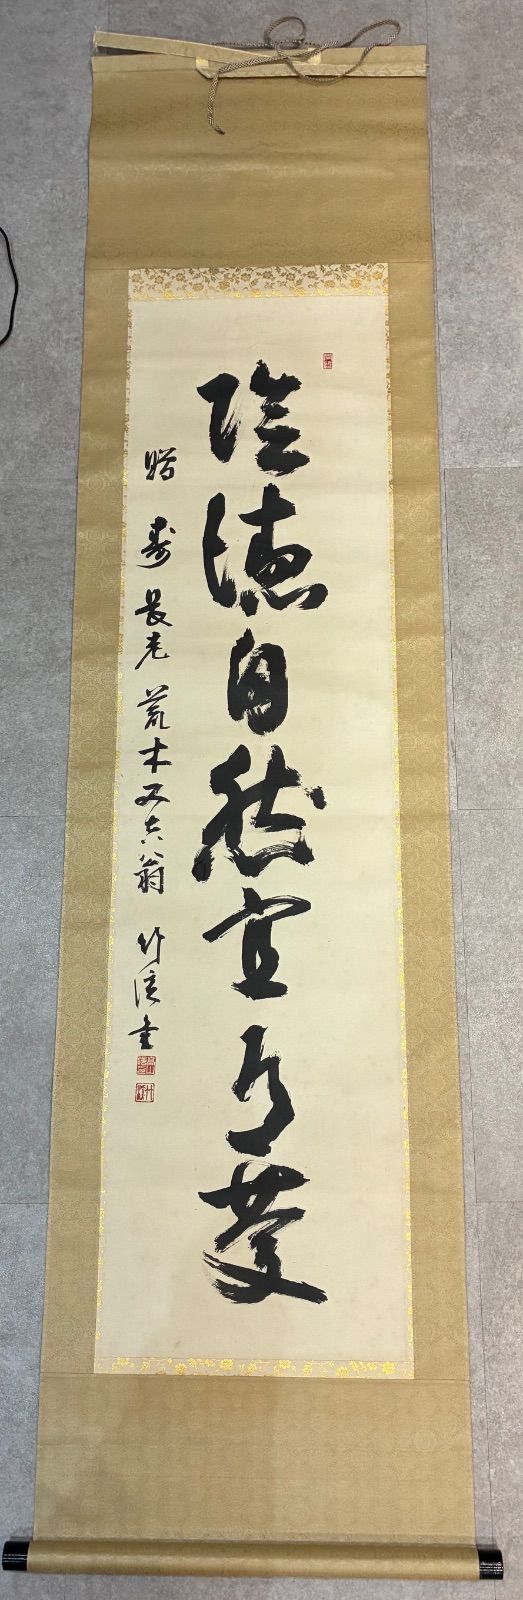 陰徳自然宜有慶
贈 寿 長老 荒木又六翁 竹渓書